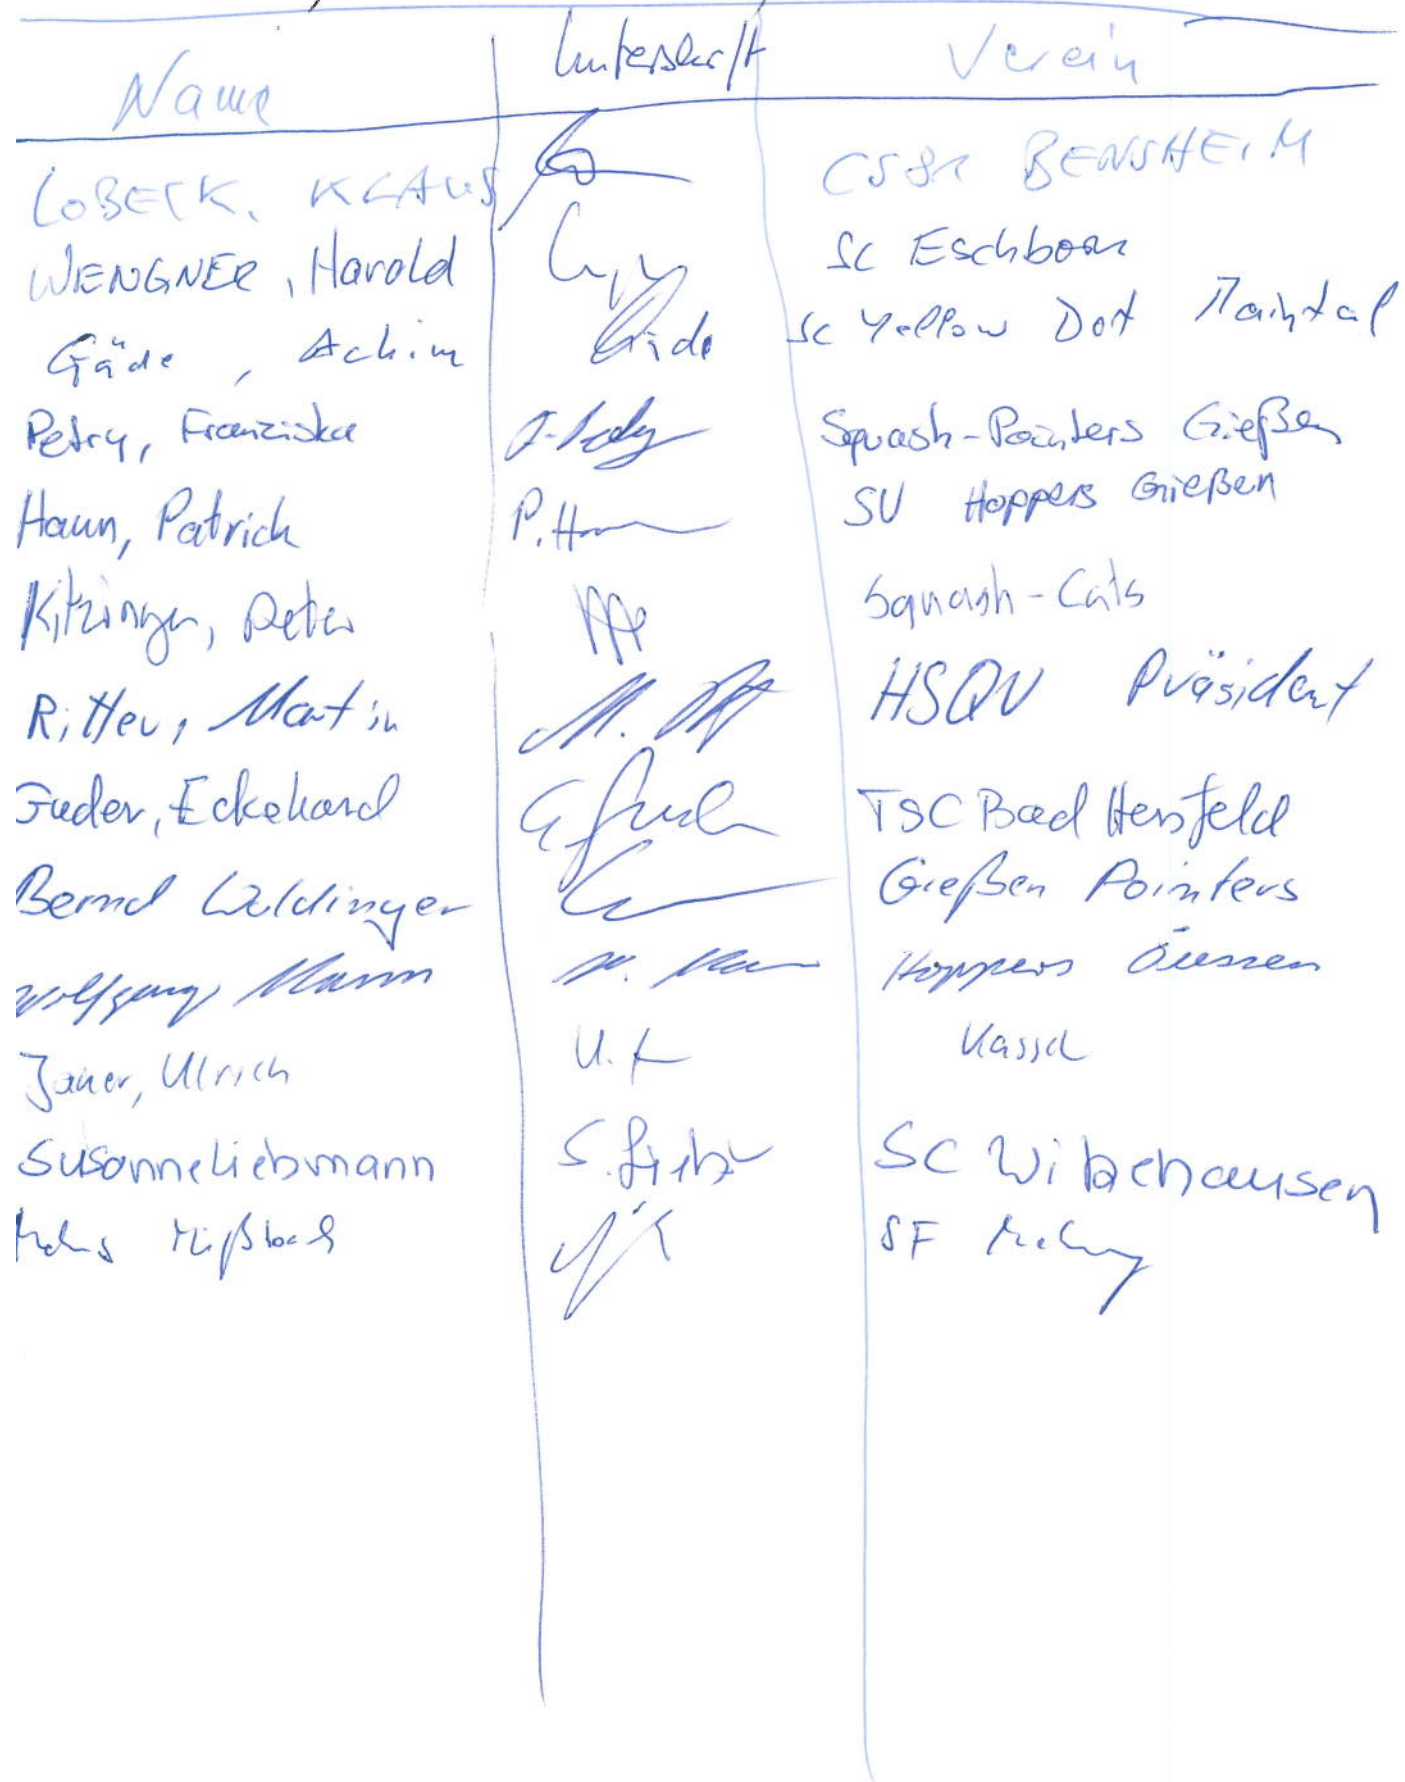 Name Unterschrift Verein
LOBECK, KLAUS BENSHEIM
WENGNER, Harald SC Eschborn
Gäde, Achim Gäde SC Yellow Dot Maintal
Petry, Franziska Squash-Pointers Gießen
Haun, Patrick P. SV Hoppers Gießen
Kitzinger, Peter Squash-Cats
Ritter, Martin M. HSQV Präsident
Guder, Eckehard TSC Bad Hersfeld
Bernd Gießen Pointers
Wolfgang Mann Hoppers
Jauer, Ulrich U. Kassel
Susanne Liebmann S. SC
Mißbach SF